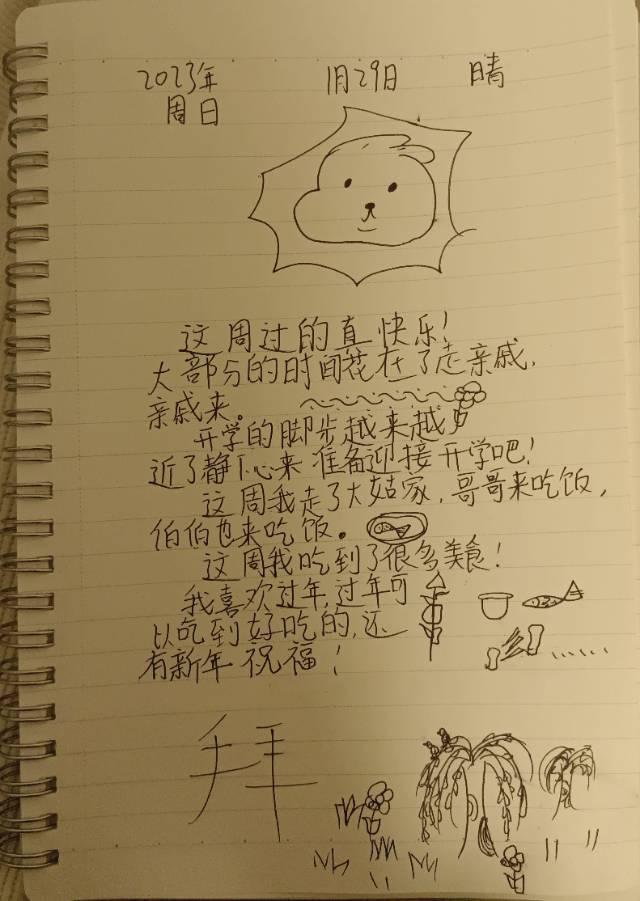 2023年 1月29日 晴
周日
这周过的真快乐！
大部分的时间花在了走亲戚，
亲戚来。
开学的脚步越来越
近了静下心来 准备迎接开学吧！
这周我走了大姑家，哥哥来吃饭，
伯伯也来吃饭。
这周我吃到了很多美食！
我喜欢过年，过年可
以吃到好吃的，还
有新年祝福！
拜